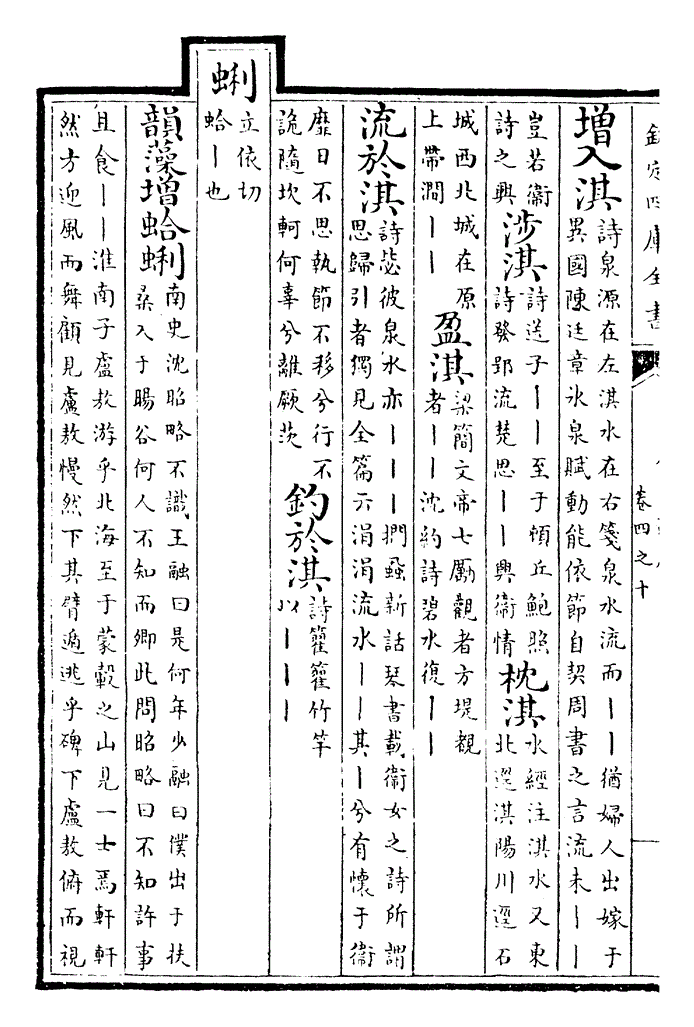 欽定四庫全書
卷四之十
增入淇
詩泉源在左淇水在右箋泉水流而丨丨猶婦人出嫁于
異國陳廷章氷泉賦動能依節自契周書之言流未丨丨
豈若衞
詩之興
涉淇
詩送子丨丨至于頓丘鮑照
詩發郢流楚思丨丨興衞情
枕淇
水經注淇水又東
北逕淇陽川逕石
城西北城在原
上帶澗丨丨
盈淇
梁簡文帝七勵觀者方堤觀
者丨丨沈約詩碧水復丨丨
流於淇
詩毖彼泉水亦丨丨丨捫蝨新話琴書載衞女之詩所謂
思歸引者獨見全篇云涓涓流水丨丨其丨兮有懷于衞
靡日不思執節不移兮行不
詭隨坎軻何辜兮離厥茨
釣於淇
詩籊籊竹竿
以丨丨丨
蜊
立依切
蛤丨也
韻藻增蛤蜊
南史沈昭略不識王融曰是何年少融曰僕出于扶
桑入于暘谷何人不知而卿此問昭略曰不知許事
且食丨丨淮南子盧敖游乎北海至于蒙轂之山見一士焉軒軒
然方迎風而舞顧見盧敖慢然下其臂遁逃乎碑下盧敖俯而視